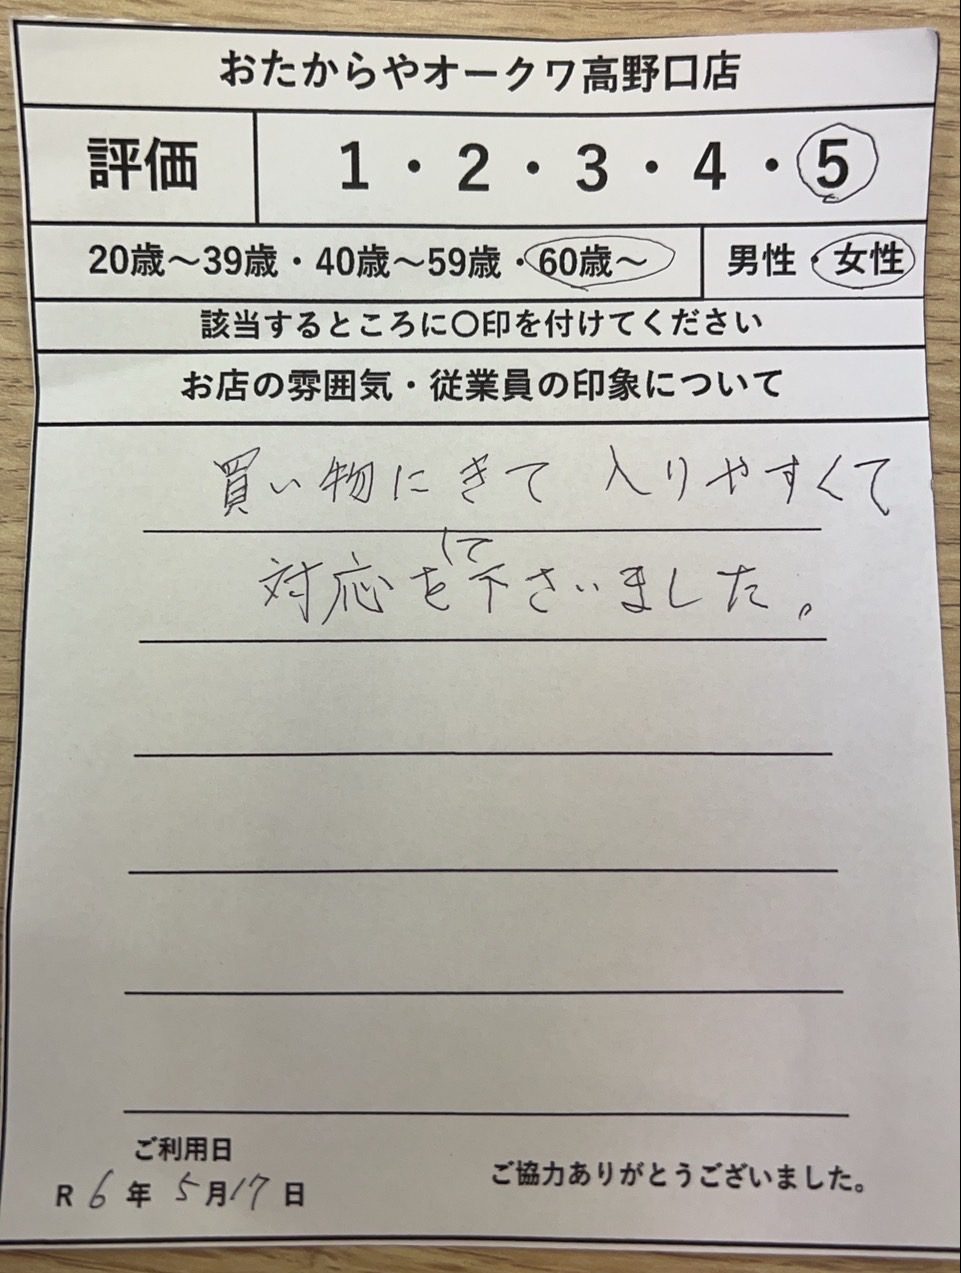 おたからやオークワ高野口店
評価 1・2・3・4・5
20歳〜39歳・40歳〜59歳・60歳〜 男性・女性
該当するところに〇印を付けてください
お店の雰囲気・従業員の印象について
買い物にきて 入りやすくて
対応をして下さいました。
ご利用日
R 6 年 5 月 17 日
ご協力ありがとうございました。